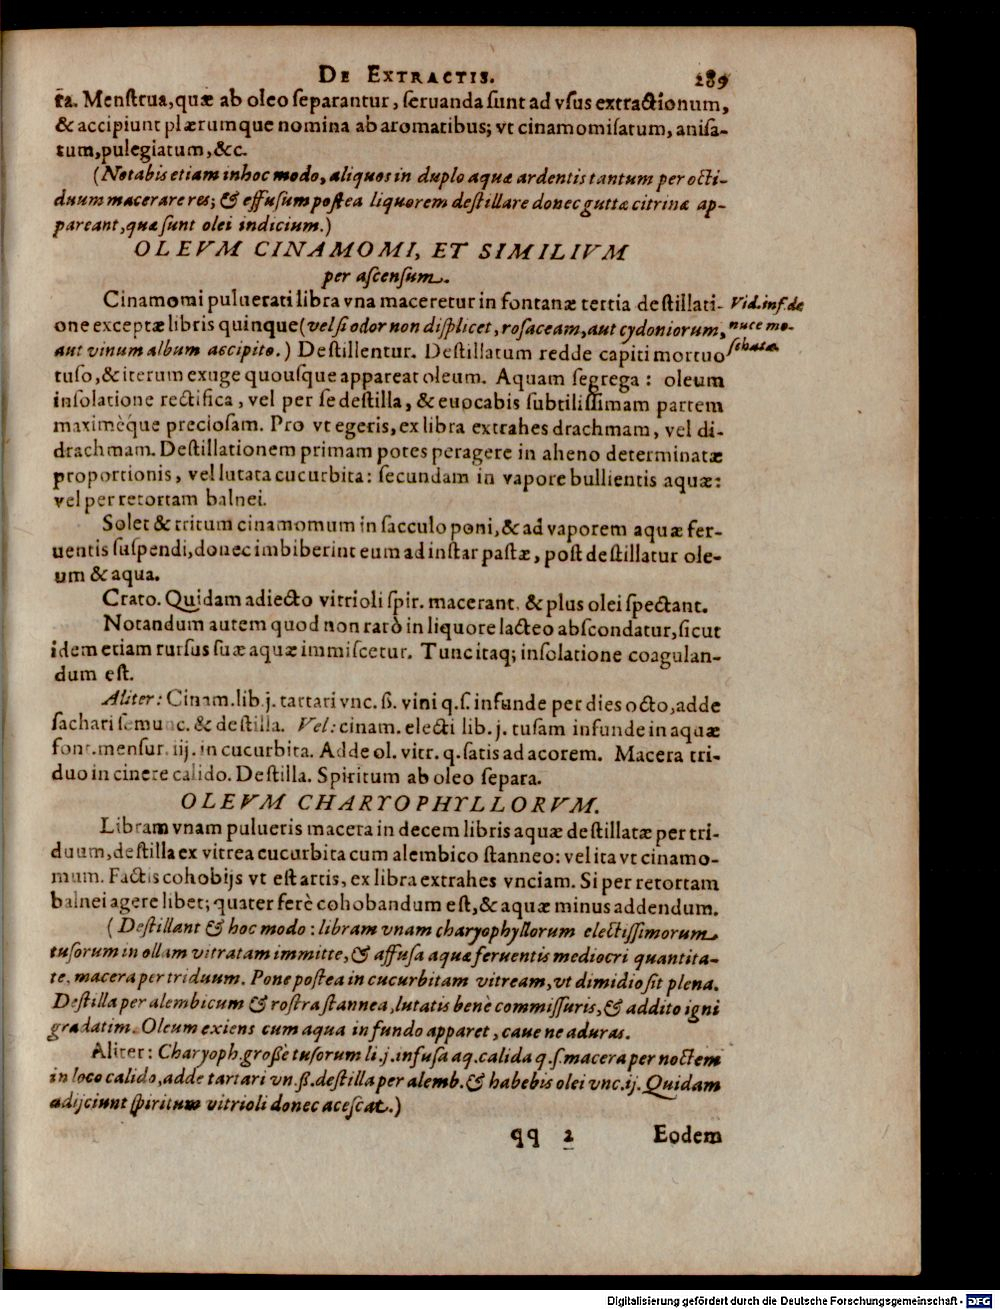 DE EXTRACTIS. 289
ta. Menſtrua, quæ ab oleo ſeparantur, ſeruanda ſunt ad vſus extractionum,
& accipiunt plærumque nomina ab aromatibus; vt cinamomiſatum, aniſa-
tum, pulegiatum, &c.
(Notabis etiam in hoc modo, aliquos in duplo aquæ ardentis tantum per octi-
duum macerare res; & effuſum poſtea liquorem deſtillare donec guttæ citrinæ ap-
pareant, quæ ſunt olei indicium.)
OLEVM CINAMOMI, ET SIMILIVM
per aſcenſum.
Cinamomi puluerati libra vna maceretur in fontanæ tertia deſtillati- Vid. inf. de
one exceptæ libris quinque (vel ſi odor non diſplicet, roſaceam, aut cydoniorum, nuce mo-
aut vinum album accipito.) Deſtillentur. Deſtillatum redde capiti mortuo ſchata.
tuſo, & iterum exuge quouſque appareat oleum. Aquam ſegrega: oleum
inſolatione rectifica, vel per ſe deſtilla, & euocabis ſubtiliſſimam partem
maximèq́ue precioſam. Pro vt egeris, ex libra extrahes drachmam, vel di-
drachmam. Deſtillationem primam potes peragere in aheno determinatæ
proportionis, vel lutata cucurbita: ſecundam in vapore bullientis aquæ:
vel per retortam balnei.
Solet & tritum cinamomum in ſacculo poni, & ad vaporem aquæ fer-
uentis ſuſpendi, donec imbiberint eum ad inſtar paſtæ, poſt deſtillatur ole-
um & aqua.
Crato. Quidam adiecto vitrioli ſpir. macerant, & plus olei ſpectant.
Notandum autem quod non rarò in liquore lacteo abſcondatur, ſicut
idem etiam rurſus ſuæ aquæ immiſcetur. Tunc itaq; inſolatione coagulan-
dum eſt.
Aliter: Cinam. lib. j. tartari vnc. ß. vini q. ſ. infunde per dies octo, adde
ſachari ſemunc. & deſtilla. Vel: cinam. electi lib. j. tuſam infunde in aquæ
font. menſur. iij. in cucurbita. Adde ol. vitr. q. ſatis ad acorem. Macera tri-
duo in cinere calido. Deſtilla. Spiritum ab oleo ſepara.
OLEVM CHARYOPHYLLORVM.
Libram vnam pulueris macera in decem libris aquæ deſtillatæ per tri-
duum, deſtilla ex vitrea cucurbita cum alembico ſtanneo: vel ita vt cinamo-
mum. Factis cohobijs vt eſt artis, ex libra extrahes vnciam. Si per retortam
balnei agere libet; quater ferè cohobandum eſt, & aquæ minus addendum.
(Deſtillant & hoc modo: libram vnam charyophyllorum electiſſimorum
tuſorum in ollam vitratam immitte, & affuſa aquæ feruentis mediocri quantita-
te, macera per triduum. Pone poſtea in cucurbitam vitream, vt dimidio ſit plena.
Deſtilla per alembicum & roſtra ſtannea, lutatis benè commiſſuris, & addito igni
gradatim. Oleum exiens cum aqua in fundo apparet, caue ne aduras.
Aliter: Charyoph. große tuſorum li. j. infuſa aq. calida q. ſ. macera per noctem
in loco calido, adde tartari vn. ß. deſtilla per alemb. & habebis olei vnc. ij. Quidam
adijciunt ſpiritum vitrioli donec aceſcat.)
qq 2 Eodem
Digitalisierung gefördert durch die Deutsche Forschungsgemeinschaft - DFG